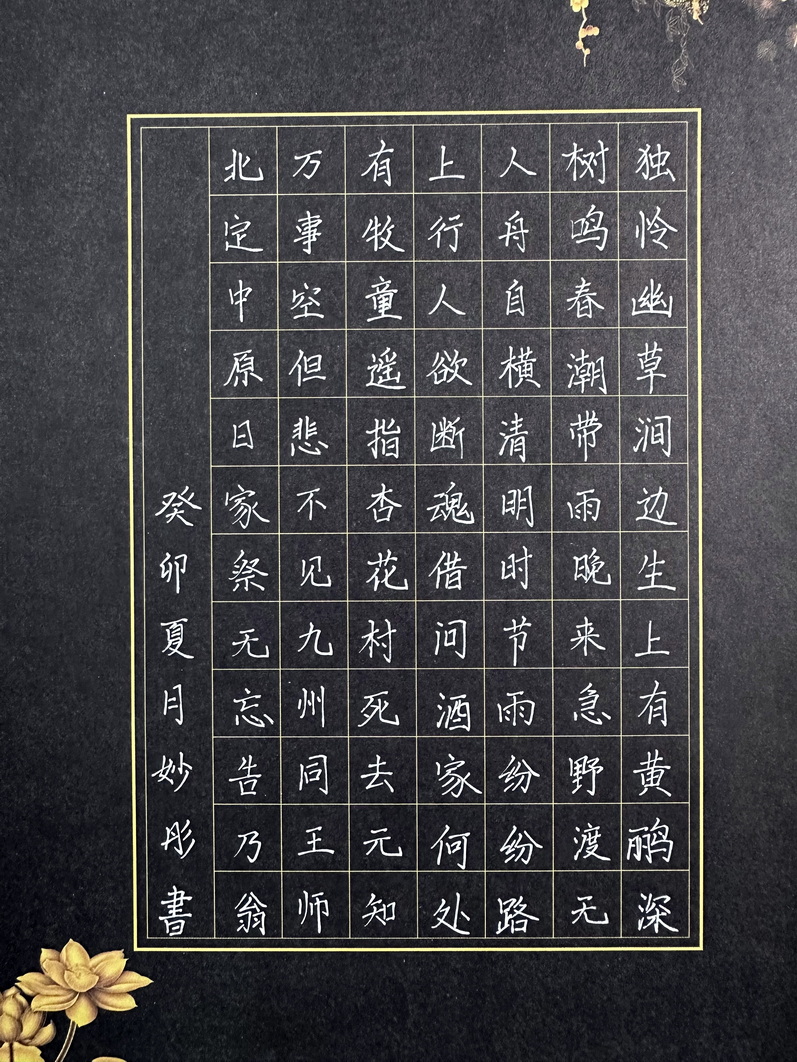 独怜幽草涧边生上有黄鹂深
树鸣春潮带雨晚来急野渡无
人舟自横清明时节雨纷纷路
上行人欲断魂借问酒家何处
有牧童遥指杏花村死去元知
万事空但悲不见九州同王师
北定中原日家祭无忘告乃翁
癸卯夏月妙彤書